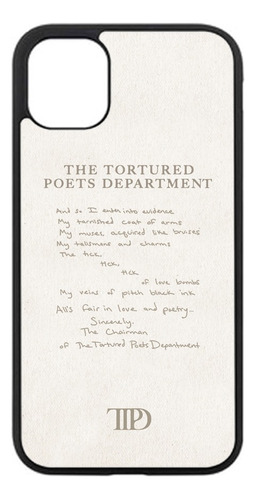 THE TORTURED
POETS DEPARTMENT
And so I enter into evidence
My tarnished coat of arms
My muses, acquired like bruises
My talismans and charms
The tick,
tick,
tick
of love bombs
My veins of pitch black ink
All's fair in love and poetry...
Sincerely,
The Chairman
of The Tortured Poets Department
TTPD